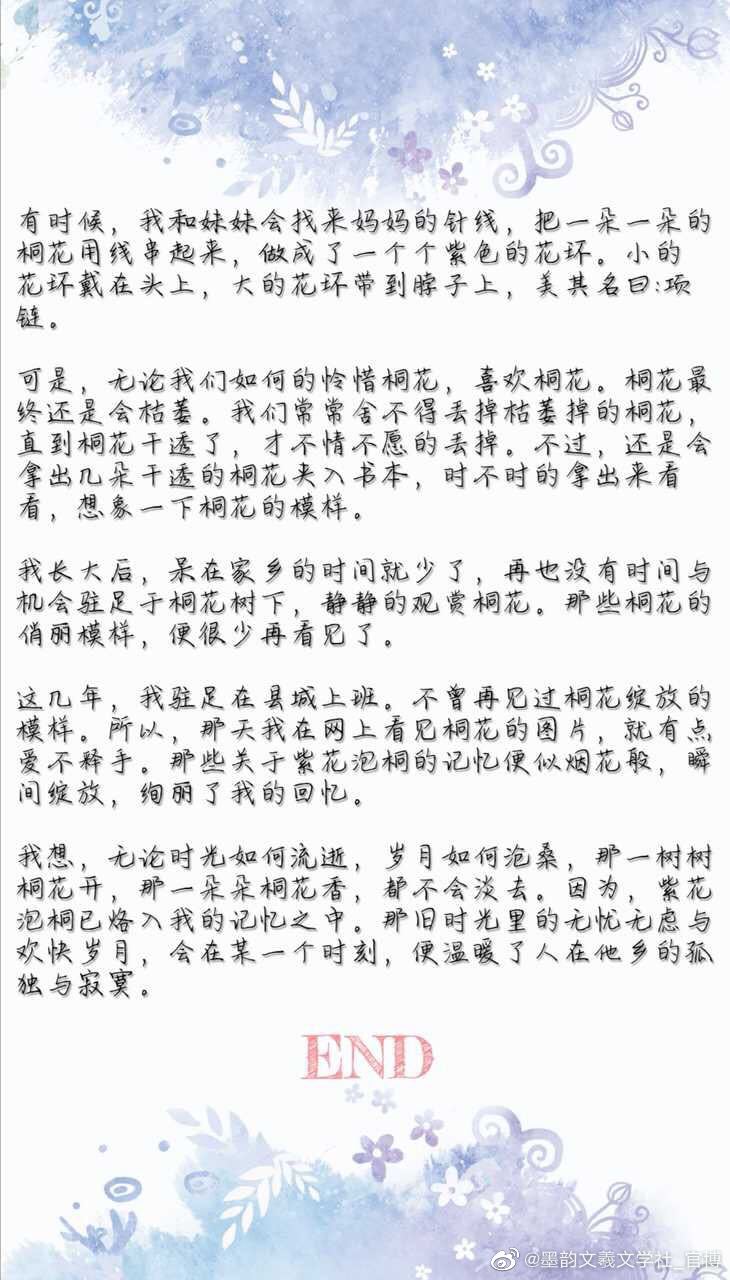 有时候，我和妹妹会找来妈妈的针线，把一朵一朵的
桐花用线串起来，做成了一个个紫色的花环。小的
花环戴在头上，大的花环带到脖子上，美其名曰:项
链。
可是，无论我们如何的怜惜桐花，喜欢桐花。桐花最
终还是会枯萎。我们常常舍不得丢掉枯萎掉的桐花，
直到桐花干透了，才不情不愿的丢掉。不过，还是会
拿出几朵干透的桐花夹入书本，时不时的拿出来看
看，想象一下桐花的模样。
我长大后，呆在家乡的时间就少了，再也没有时间与
机会驻足于桐花树下，静静的观赏桐花。那些桐花的
俏丽模样，便很少再看见了。
这几年，我驻足在县城上班。不曾再见过桐花绽放的
模样。所以，那天我在网上看见桐花的图片，就有点
爱不释手。那些关于紫花泡桐的记忆便似烟花般，瞬
间绽放，绚丽了我的回忆。
我想，无论时光如何流逝，岁月如何沧桑，那一树树
桐花开，那一朵朵桐花香，都不会淡去。因为，紫花
泡桐已烙入我的记忆之中。那旧时光里的无忧无虑与
欢快岁月，会在某一个时刻，便温暖了人在他乡的孤
独与寂寞。
END
@墨韵文羲文学社_官博